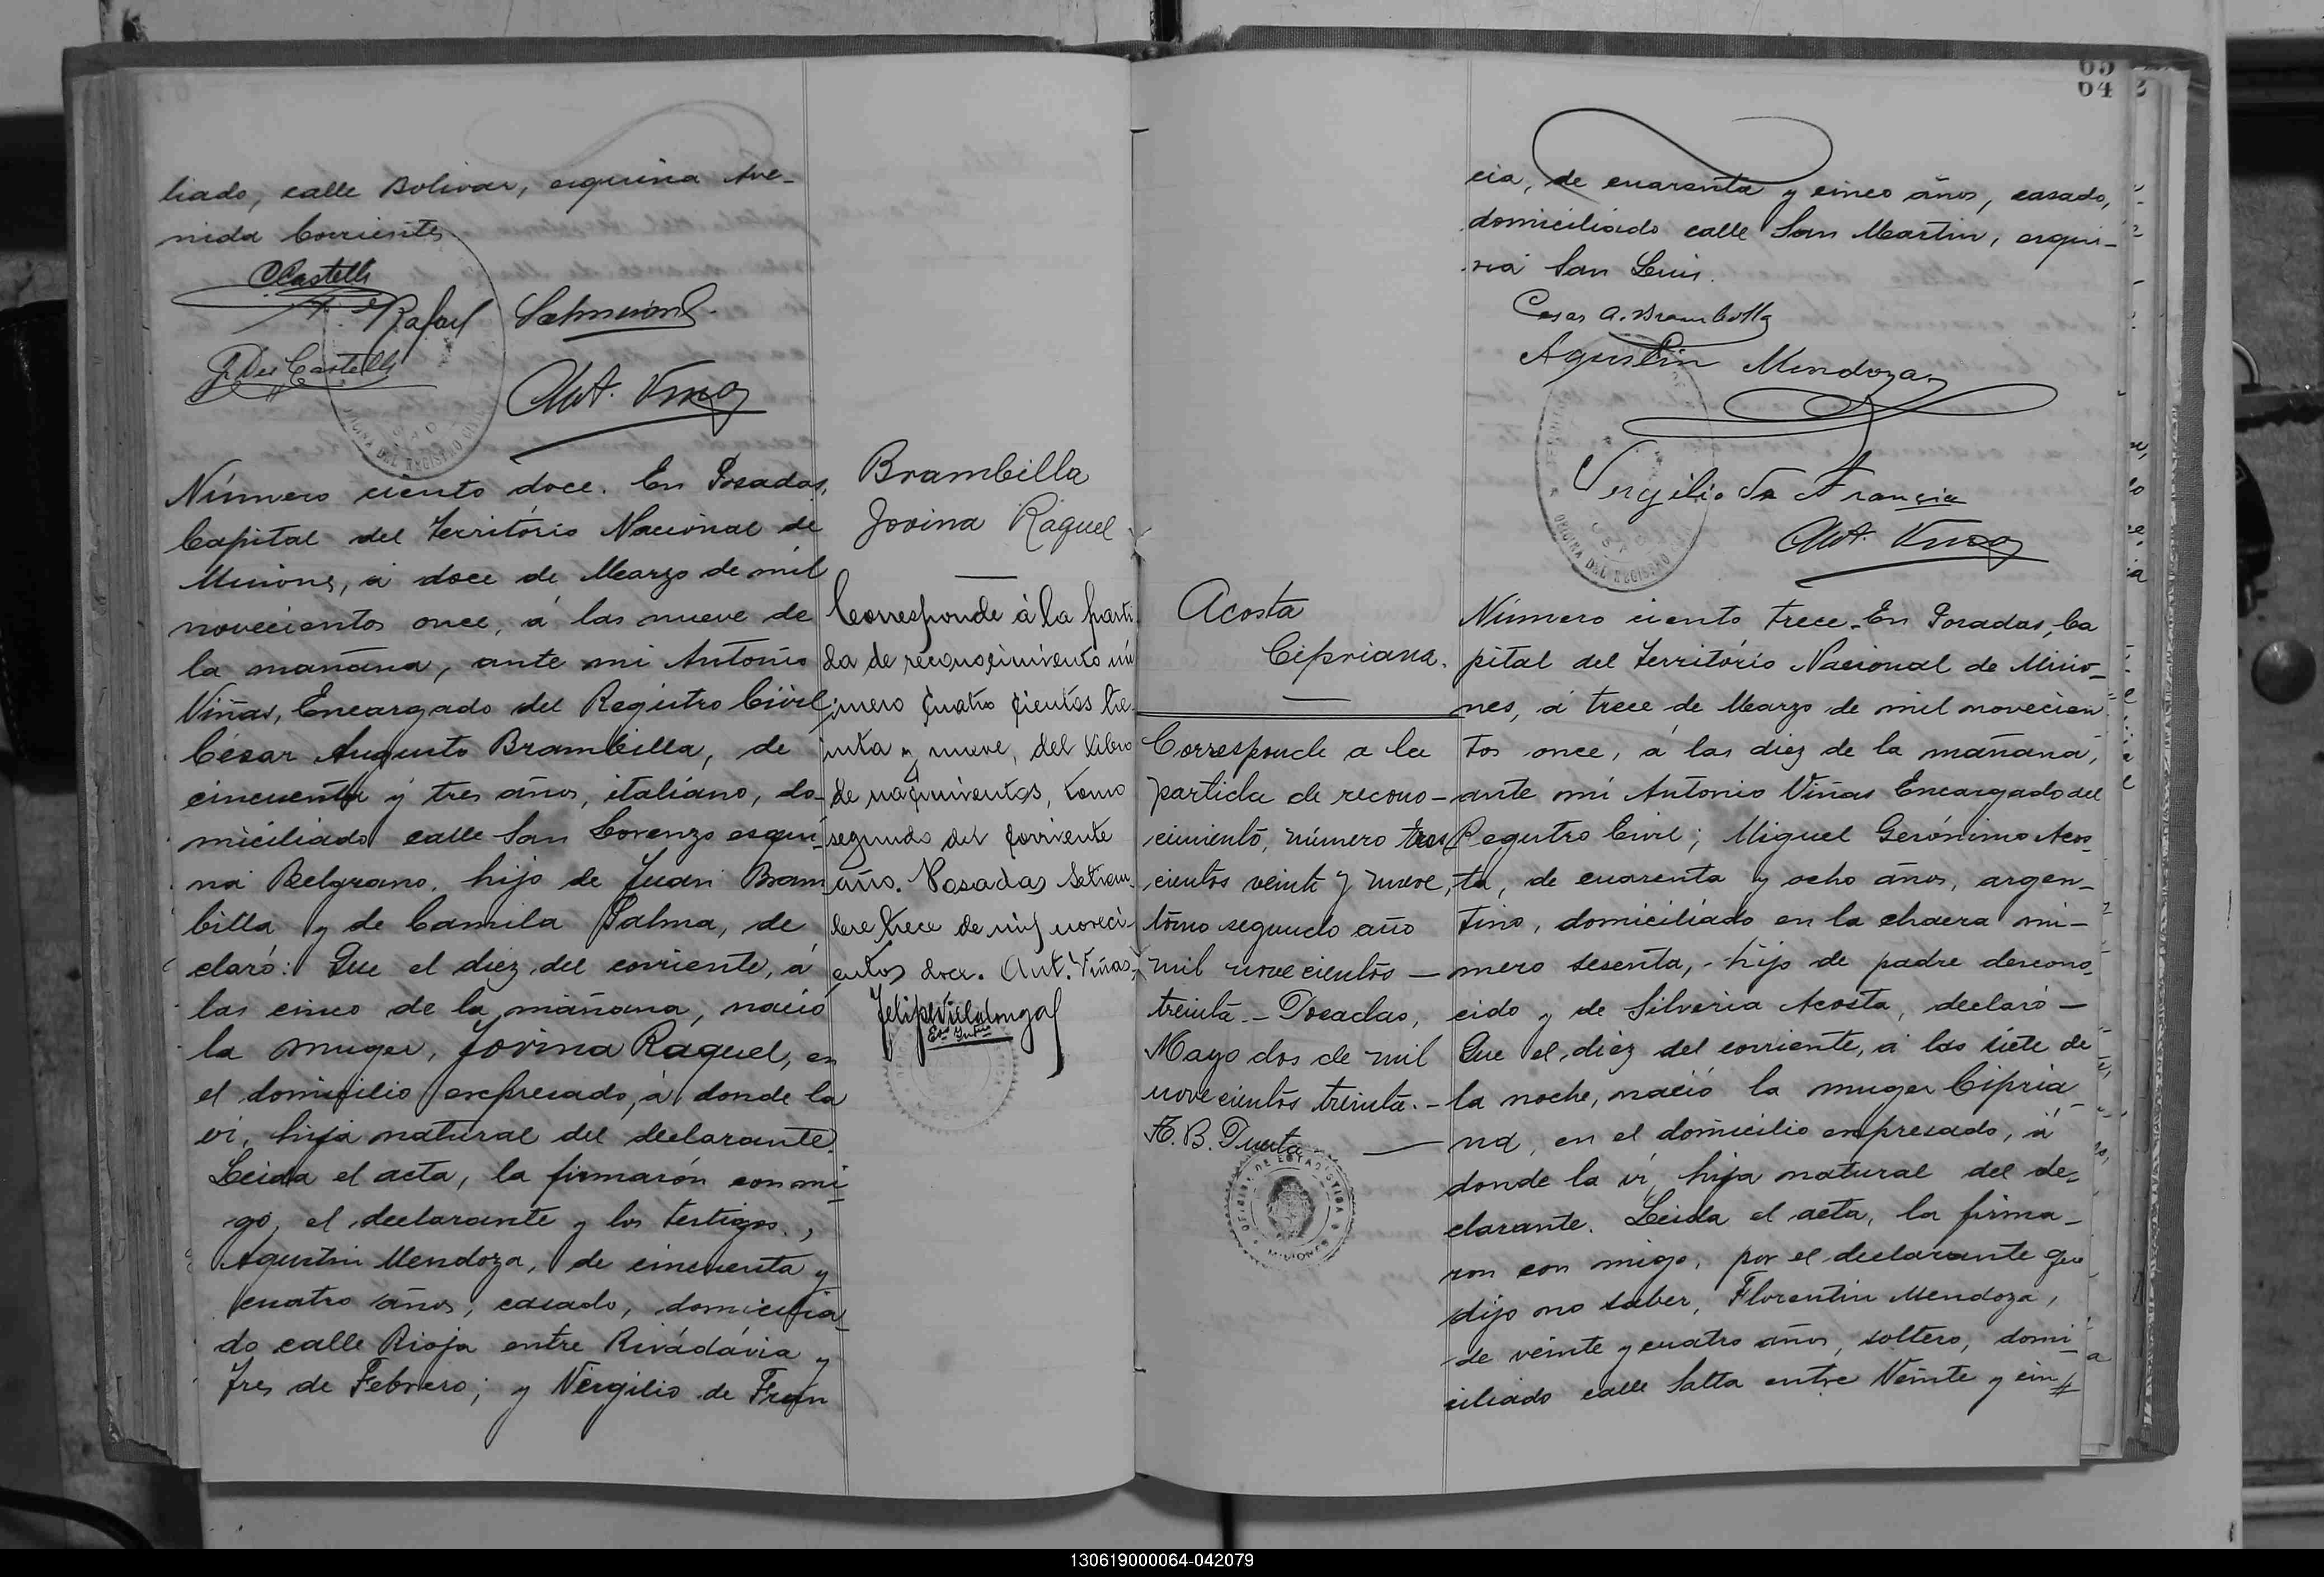 liado, calle Bolivar, esquina Ave-
nida Corrientes
CCastells
Rafael
J. Des Castells
Ant. Vinas
Número ciento doce. En Posadas,
Capital del Território Nacional de
Misiones, á doce de Marzo de mil
novecientos once, á las nueve de
la mañana, ante mi Antonio
Viñas, Encargado del Registro Civil
César Augusto Brambilla, de
cincuenta y tres años, italiano, do-
miciliado calle San Lorenzo esqui-
na Belgrano, hijo de Juan Bram-
billa y de Camila Palma, de
claró: Que el diez del corriente, á
las cinco de la mañana, nació
la muger, Jovina Raquel, en
el domicilio expresado, á donde la
ví, hija natural del declarante.
Leida el acta, la firmarón con mi-
go, el declarante y los testigos,
Agustin Mendoza, de cincuenta y
cuatro años, casado, domicilia-
do calle Rioja entre Rivádávia y
Tres de Febrero; y Vergilio de Fran
Brambilla
Jovina Raquel
Corresponde à la parti-
da de reconocimiento nú
mero cuatro cientos tre-
inta y nueve, del Libro
de nacimientos, tomo
segundo del corriente
año. Posadas Setiem-
bre trece de mil noveci-
entos doce. Ant. Viñas
Felip Vilalonga
65
64
cia, de cuarenta y cinco años, casado,
domiciliado calle San Martin, esqui-
na San Luis.
Cesar A. Brambilla
Agustin Mendoza
Vergilio De Francia
Ant. Vinas
OFICINA DEL REGISTRO CIVIL
Acosta
Cipriana.
Corresponde a la
partida de recono-
cimiento, número tres
cientos veinte y nueve,
tomo segundo año
mil novecientos
treinta.- Posadas,
Mayo dos de mil
novecientos treinta.-
A. B. Puerta
Número ciento trece. En Posadas, Ca
pital del Território Nacional de Misio-
nes, á trece de Marzo de mil novecien
tos once, á las diez de la mañana,
ante mí Antonio Viñas Encargado del
Registro Civil; Miguel Gerónimo Acos-
ta, de cuarenta y ocho años, argen-
tino, domiciliado en la chacra nú-
mero sesenta, hijo de padre descono-
cido y de Silveria Acosta, declaró-
Que el diez del corriente, á las siete de
la noche, nació la muger Cipria-
na, en el domicilio expresado, á
donde la ví, hija natural del de-
clarante. Leida el acta, la firma-
ron con migo, por el declarante que
dijo no saber, Florentin Mendoza,
de veinte y cuatro años, soltero, domi-
ciliado calle Salta entre Veinte y cin
130619000064-042079